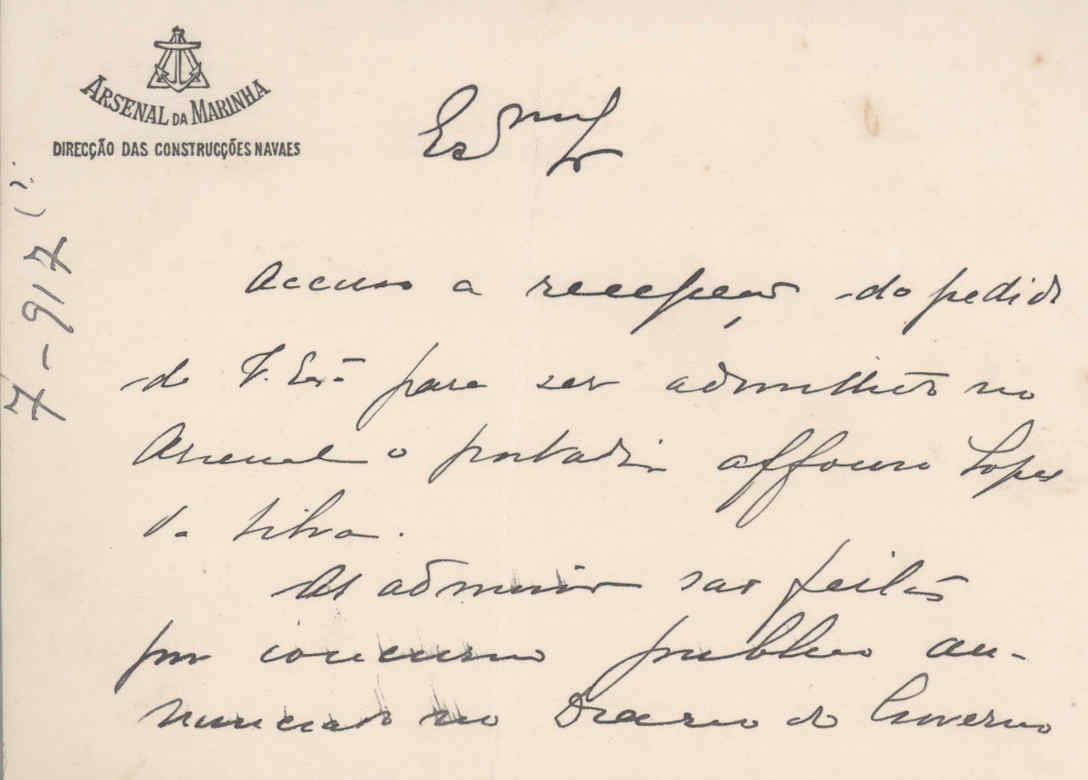 ARSENAL DA MARINHA
DIRECÇÃO DAS CONSTRUCÇÕES NAVAES
7-917
Accuso a recepção do pedido
de V. Exª para ser admittido no
Arsenal o portador Affonso Lopes
da Silva.
As admissões são feitas
por concurso publico an-
nunciado no Diario do Governo